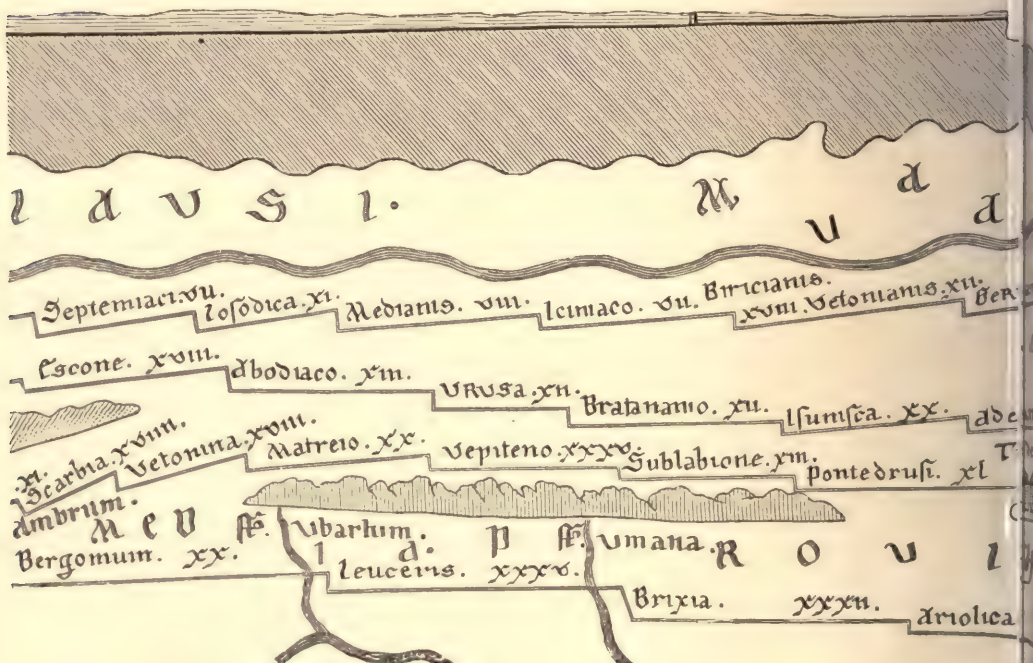 l d v s l.
M v d d
Septemiaci. vıı. losodica. xı. Medianis. vııı. Icimaco. vıı. Biricianis. xvııı. Vetonianis. xıı. Ger
Escone. xvııı. Abodiaco. xııı. URUSa. xıı. Bratananio. xıı. Isunisca. xx. Ade
.xı. Scarbia. xvıııı. Vetonina. xvııı. Matreio. xx. Vepiteno. xxxv. Sublabione. xııı. Pontedrusi. xl
T
Ambrum.
M e D ff. Ubartum. l d. p ff. Umana. R O V I
Bergomum. xx. leuceris. xxxv. Brixia. xxxıı. Ariolica